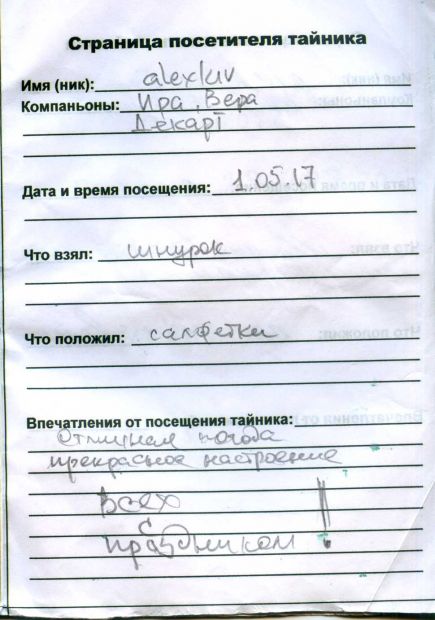 Страница посетителя тайника
Имя (ник): alexluv
Компаньоны: Ира, Вера
Декарт
Дата и время посещения: 1.05.17
Что взял: шнурок
Что положил: салфетки
Впечатления от посещения тайника:
Отличная погода
прекрасное настроение
Всех
с
праздником!